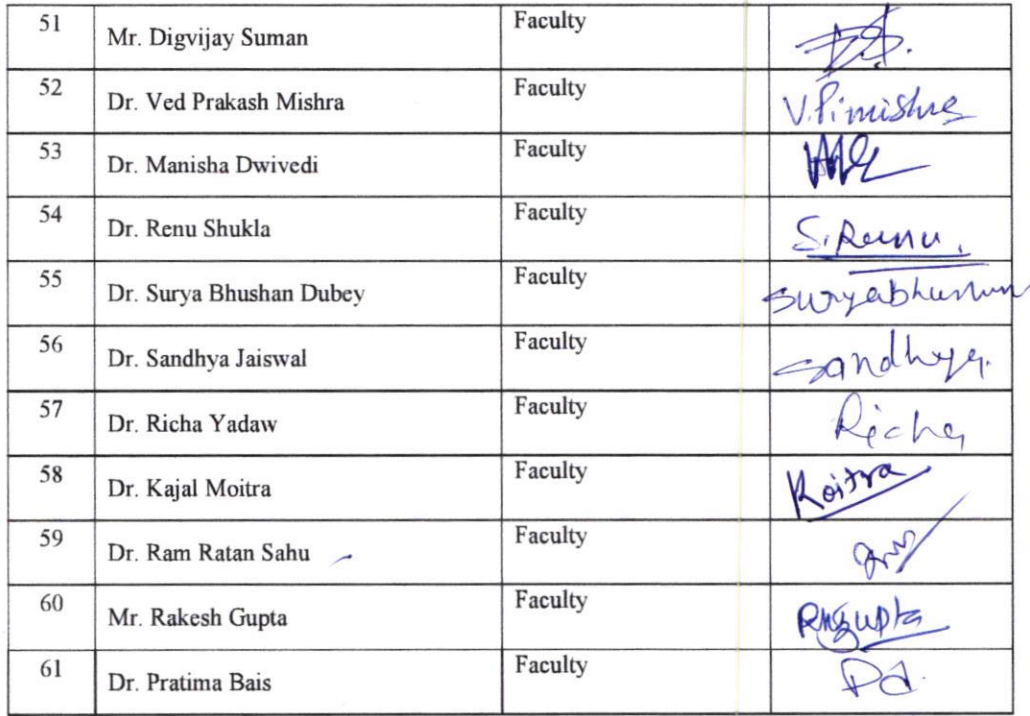 51 Mr. Digvijay Suman Faculty
52 Dr. Ved Prakash Mishra Faculty V.P.mishra
53 Dr. Manisha Dwivedi Faculty
54 Dr. Renu Shukla Faculty S.Renu.
55 Dr. Surya Bhushan Dubey Faculty Suryabhushan
56 Dr. Sandhya Jaiswal Faculty Sandhya.
57 Dr. Richa Yadaw Faculty Richa
58 Dr. Kajal Moitra Faculty Koitra
59 Dr. Ram Ratan Sahu Faculty
60 Mr. Rakesh Gupta Faculty RKgupta
61 Dr. Pratima Bais Faculty